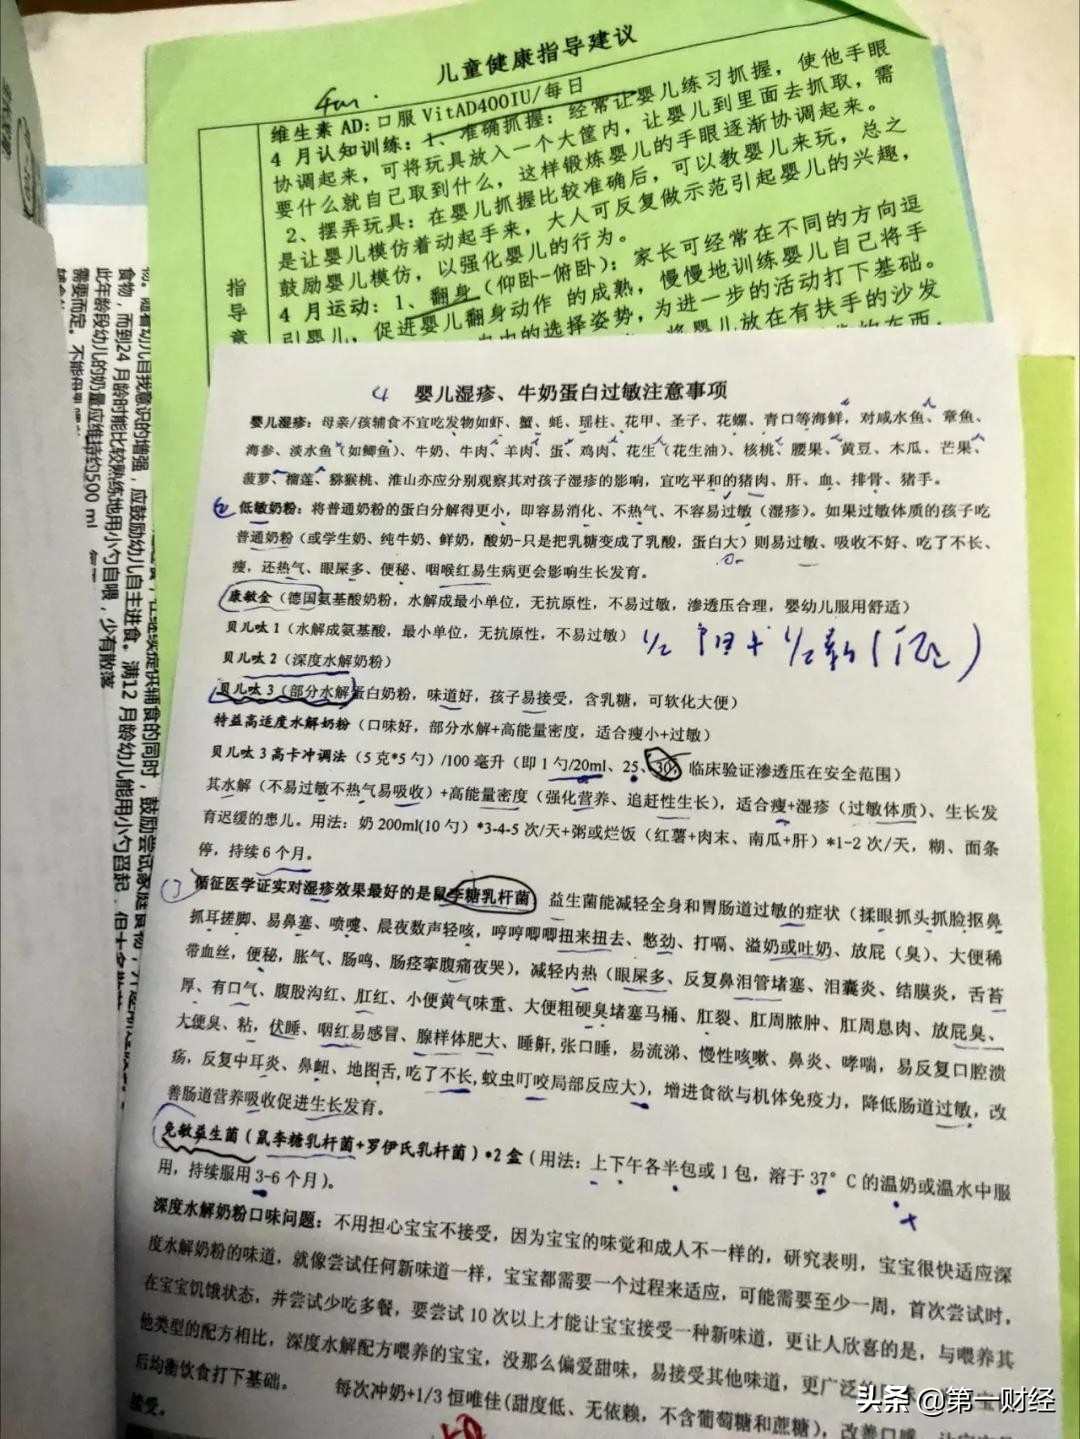 儿童健康指导建议
维生素 AD: 口服 VitAD400IU/每日
4 月认知训练: 1、准确抓握: 经常让婴儿练习抓握, 使他手眼
协调起来, 可将玩具放入一个大筐内, 让婴儿到里面去抓取, 需
要什么就自己取到什么, 这样锻炼婴儿的手眼逐渐协调起来。
2、摆弄玩具: 在婴儿抓握比较准确后, 可以教婴儿来玩, 总之
是让婴儿模仿着动起手来, 大人可反复做示范引起婴儿的兴趣,
鼓励婴儿模仿, 以强化婴儿的行为。
4 月运动: 1、翻身 (仰卧-俯卧): 家长可经常在不同的方向逗
引婴儿, 促进婴儿翻身动作 的成熟, 慢慢地训练婴儿自己将手
的选择姿势, 为进一步的活动打下基础。
将婴儿放在有扶手的沙发
指
导
意
4 婴儿湿疹、牛奶蛋白过敏注意事项
婴儿湿疹: 母亲/孩辅食不宜吃发物如虾、蟹、蚝、瑶柱、花甲、圣子、花螺、青口等海鲜, 对咸水鱼、章鱼、
海参、淡水鱼 (如鲫鱼)、牛奶、牛肉、羊肉、蛋、鸡肉、花生 (花生油)、核桃、腰果、黄豆、木瓜、芒果、
菠萝、榴莲、猕猴桃、淮山亦应分别观察其对孩子湿疹的影响, 宜吃平和的猪肉、肝、血、排骨、猪手。
② 低敏奶粉: 将普通奶粉的蛋白分解得更小, 即容易消化、不热气、不容易过敏 (湿疹)。如果过敏体质的孩子吃
普通奶粉 (或学生奶、纯牛奶、鲜奶, 酸奶-只是把乳糖变成了乳酸, 蛋白大) 则易过敏、吸收不好、吃了不长、
瘦, 还热气、眼屎多、便秘、咽喉红易生病更会影响生长发育。
康敏全 (德国氨基酸奶粉, 水解成最小单位, 无抗原性, 不易过敏, 渗透压合理, 婴幼儿服用舒适)
贝儿呔 1 (水解成氨基酸, 最小单位, 无抗原性, 不易过敏)
贝儿呔 2 (深度水解奶粉)
贝儿呔 3 (部分水解蛋白奶粉, 味道好, 孩子易接受, 含乳糖, 可软化大便)
特益高适度水解奶粉 (口味好, 部分水解+高能量密度, 适合瘦小+过敏)
贝儿呔 3 高卡冲调法 (5 克*5 勺) /100 毫升 (即 1 勺/20ml、25、30, 临床验证渗透压在安全范围)
其水解 (不易过敏不热气易吸收) +高能量密度 (强化营养、追赶性生长), 适合瘦+湿疹 (过敏体质)、生长发
育迟缓的患儿。用法: 奶 200ml(10 勺) *3-4-5 次/天+粥或烂饭 (红薯+肉末、南瓜+肝) *1-2 次/天, 糊、面条
停, 持续 6 个月。
循征医学证实对湿疹效果最好的是鼠李糖乳杆菌 益生菌能减轻全身和胃肠道过敏的症状 (揉眼抓头抓脸抠鼻
抓耳搓脚、易鼻塞、喷嚏、晨夜数声轻咳, 哼哼唧唧扭来扭去、憋劲、打嗝、溢奶或吐奶、放屁 (臭)、大便稀
带血丝, 便秘, 胀气、肠鸣、肠痉挛腹痛夜哭), 减轻内热 (眼屎多、反复鼻泪管堵塞、泪囊炎、结膜炎, 舌苔
厚、有口气、腹股沟红、肛红、小便黄气味重、大便粗硬臭堵塞马桶、肛裂、肛周脓肿、肛周息肉、放屁臭、
大便臭、粘, 伏睡、咽红易感冒、腺样体肥大、睡鼾,张口睡, 易流涕、慢性咳嗽、鼻炎、哮喘, 易反复口腔溃
疡, 反复中耳炎、鼻衄、地图舌,吃了不长,蚊虫叮咬局部反应大), 增进食欲与机体免疫力, 降低肠道过敏, 改
善肠道营养吸收促进生长发育。
免敏益生菌 (鼠李糖乳杆菌+罗伊氏乳杆菌) *2 盒 (用法: 上下午各半包或 1 包, 溶于 37° C 的温奶或温水中服
用, 持续服用 3-6 个月)。
深度水解奶粉口味问题: 不用担心宝宝不接受, 因为宝宝的味觉和成人不一样的, 研究表明, 宝宝很快适应深
度水解奶粉的味道, 就像尝试任何新味道一样, 宝宝都需要一个过程来适应, 可能需要至少一周, 首次尝试时,
在宝宝饥饿状态, 并尝试少吃多餐, 要尝试 10 次以上才能让宝宝接受一种新味道, 更让人欣喜的是, 与喂养其
他类型的配方相比, 深度水解配方喂养的宝宝, 没那么偏爱甜味, 易接受其他味道, 更广泛的
后均衡饮食打下基础。 每次冲奶+1/3 恒唯佳(甜度低、无依赖, 不含葡萄糖和蔗糖), 改善口感
接受。
儿自我意识的增强, 应鼓励幼儿自主进食。满12 月龄幼儿能用小勺舀起
食物, 而到24 月龄时能比较熟练地用小勺自喂, 少有散落
此年龄段幼儿的奶量应维持约500 ml
需要而定。不能
辅食的同时, 鼓励尝试家庭食物
头条 @第一财经